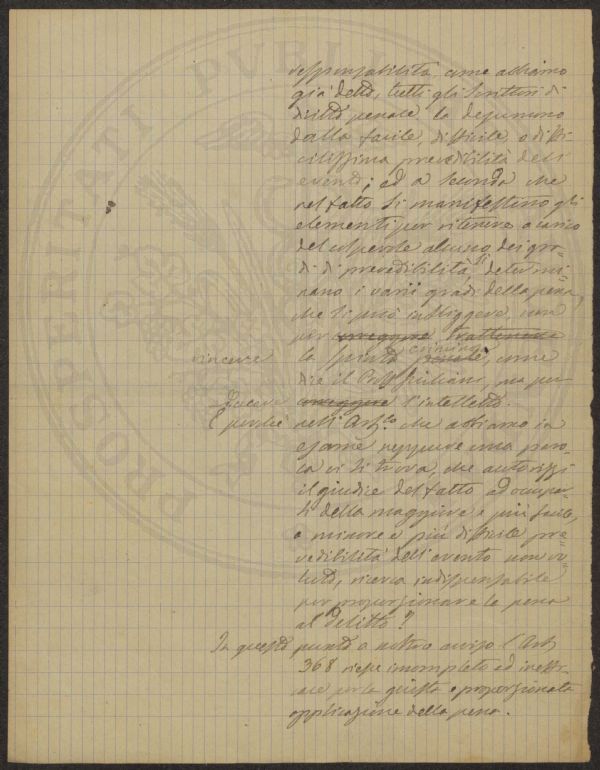 responsabilità, come abbiamo
già detto, tutti gli scrittori di
diritto penale la desumono
dalla facile, difficile o diffi-
cilissima prevedibilità degli
eventi; ed a seconda che
nel fatto si manifestino gli
elementi per ritenere a carico
del colpevole alcuno dei gra-
di di prevedibilità, si determi-
nano i varii gradi della pena,
che si può infliggere, non
per correggere trattenere
vincere la spinta penale criminosa, come
dice il Prof. Giuliani, ma per
correggere l'intelletto.
E perché nell'Art.lo che abbiamo in
esame neppure una paro-
la vi si trova, che autorizzi
il giudice del fatto ad occupar-
si della maggiore e più facile,
o minore e più difficile pre-
vedibilità dell'evento non vo-
luto, ricerca indispensabile
per proporzionare la pena
al delitto?
In questo punto a nostro avviso l'Art.
368 riesce incompleto ed ineffi-
cace per la giusta e proporzionata
applicazione della pena.
PROSPERITATI PVBLI